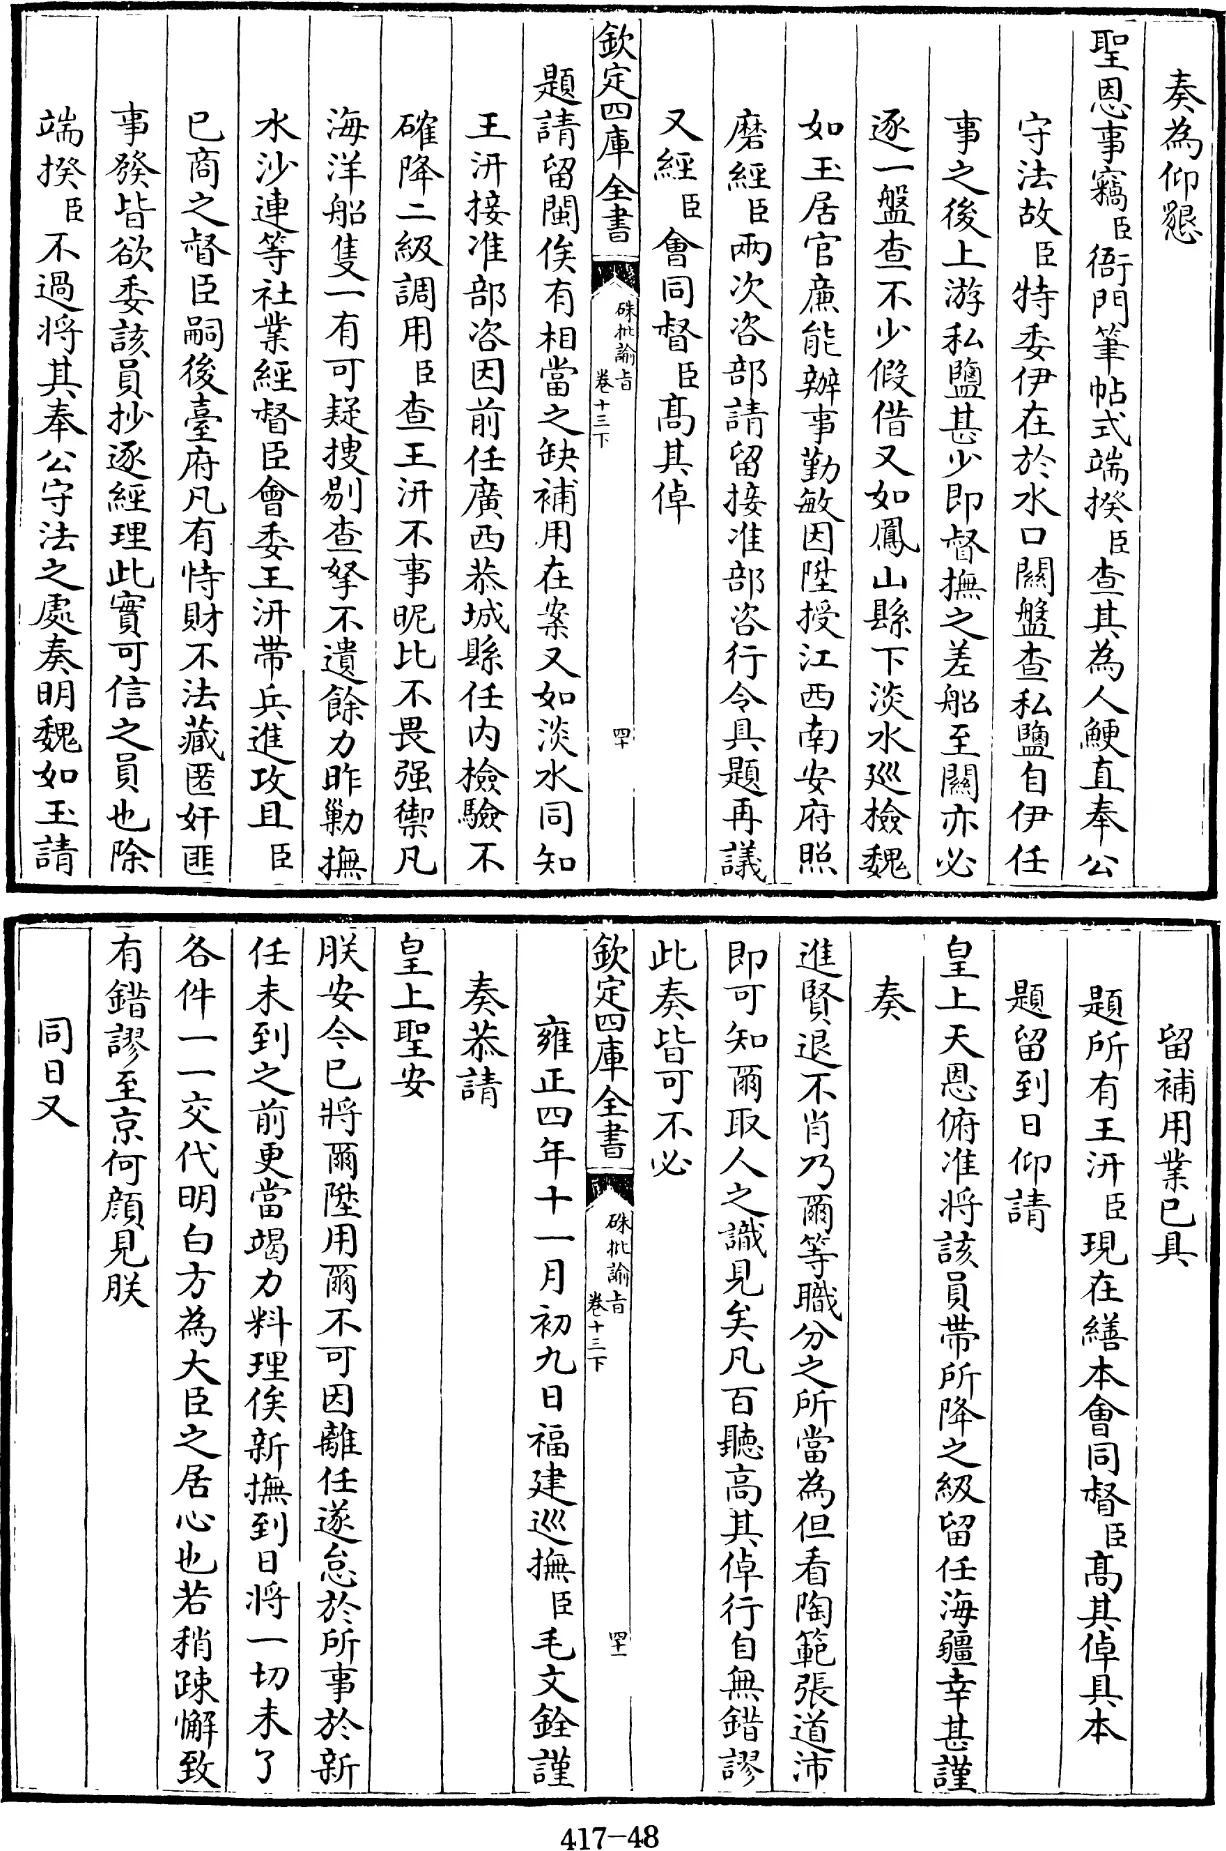 奏為仰懇
聖恩事竊臣衙門筆帖式端揆臣查其為人鯁直奉公
守法故臣特委伊在於水口關盤查私鹽自伊任
事之後上游私鹽甚少即督撫之差船至關亦必
逐一盤查不少假借又如鳳山縣下淡水巡檢魏
如玉居官廉能辦事勤敏因陞授江西南安府照
磨經臣兩次咨部請留接准部咨行令具題再議
又經臣會同督臣高其倬
欽定四庫全書
硃批諭旨
卷十三下
四十
題請留閩俟有相當之缺補用在案又如淡水同知
王汧接准部咨因前任廣西恭城縣任內檢驗不
確降二級調用臣查王汧不事昵比不畏强禦凡
海洋船隻一有可疑搜剔查拏不遺餘力昨勦撫
水沙連等社業經督臣會委王汧帶兵進攻且臣
已商之督臣嗣後臺府凡有恃財不法藏匿奸匪
事發皆欲委該員抄逐經理此實可信之員也除
端揆臣不過將其奉公守法之處奏明魏如玉請
留補用業已具
題所有王汧臣現在繕本會同督臣高其倬具本
題留到日仰請
皇上天恩俯准將該員帶所降之級留任海疆幸甚謹
奏
進賢退不肖乃爾等職分之所當為但看陶範張道沛
即可知爾取人之識見矣凡百聽高其倬行自無錯謬
此奏皆可不必
欽定四庫全書
硃批諭旨
卷十三下
四十一
雍正四年十一月初九日福建巡撫臣毛文銓謹
奏恭請
皇上聖安
朕安今已將爾陞用爾不可因離任遂怠於所事於新
任未到之前更當竭力料理俟新撫到日將一切未了
各件一一交代明白方為大臣之居心也若稍疎懈致
有錯謬至京何顏見朕
同日又
417-48